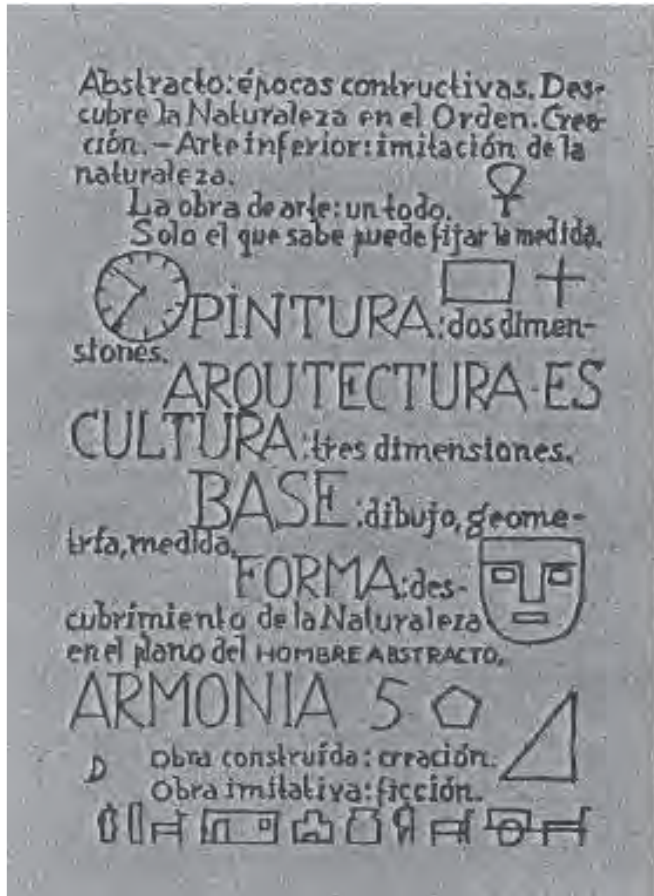 Abstracto: épocas contructivas. Des-
cubre la Naturaleza en el Orden. Crea-
ción. – Arte inferior: imitación de la
naturaleza.
La obra de arte: un todo.
Solo el que sabe puede fijar la medida.
PINTURA: dos dimen-
siones.
ARQUTECTURA-ES
CULTURA: tres dimensiones.
BASE: dibujo, geome-
tría, medida.
FORMA: des-
cubrimiento de la Naturaleza
en el plano del HOMBRE ABSTRACTO.
ARMONIA 5
D Obra construída: creación.
Obra imitativa: ficción.